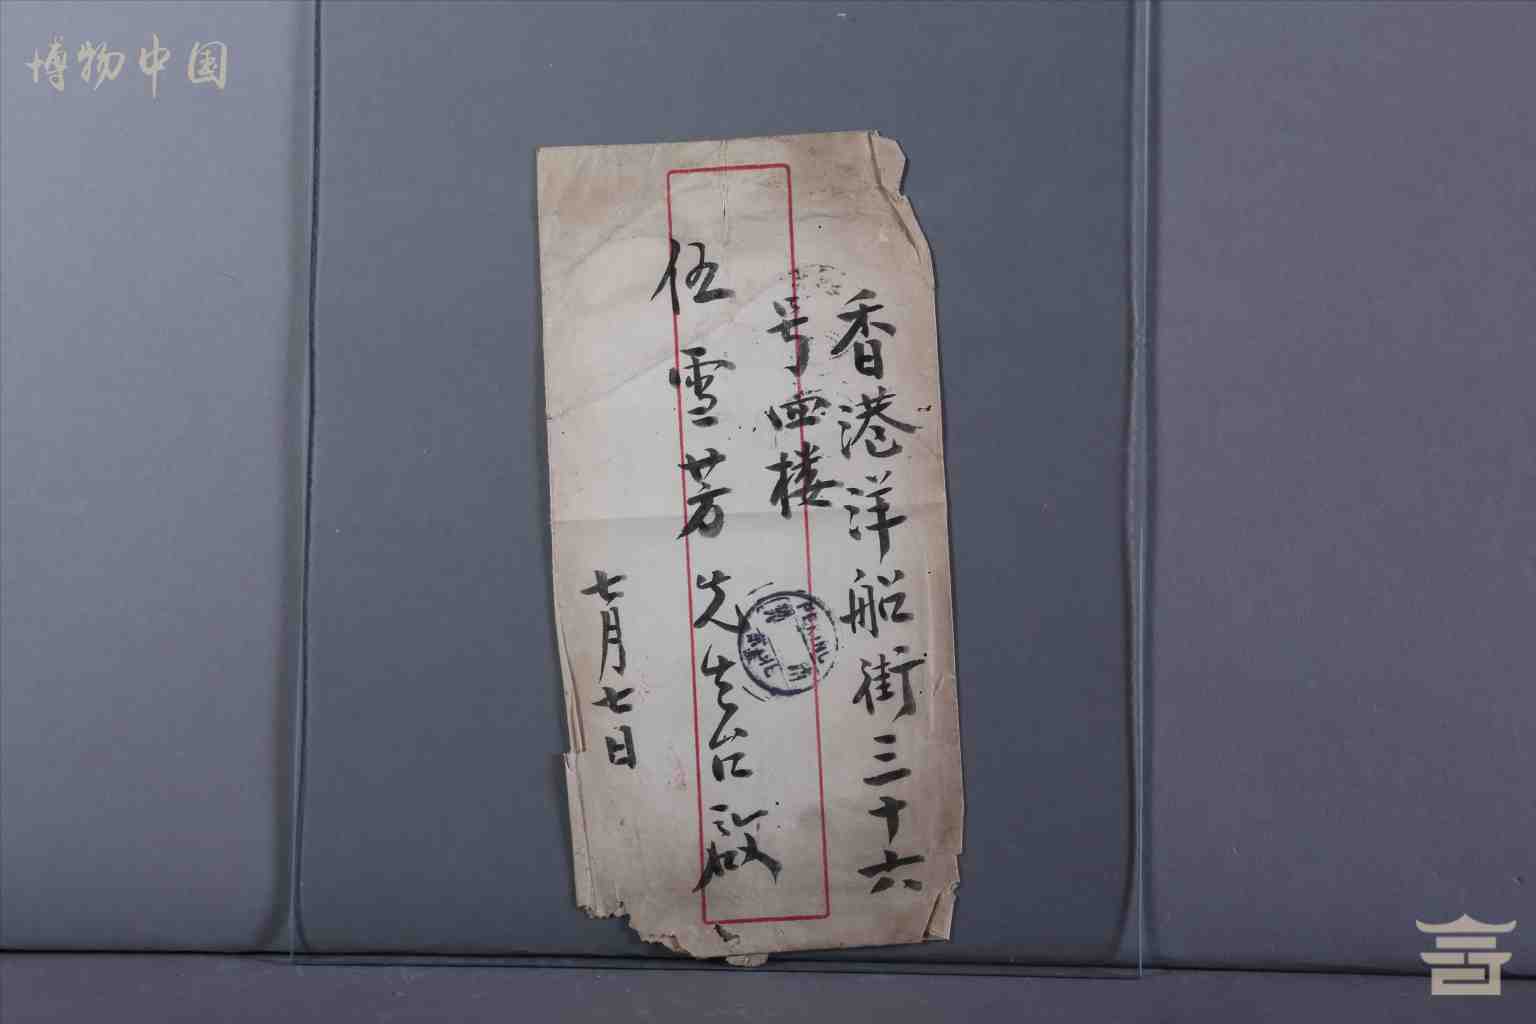 博物中国
香港洋船街三十六
号四楼
伍雪芳先生台啟
七月七日